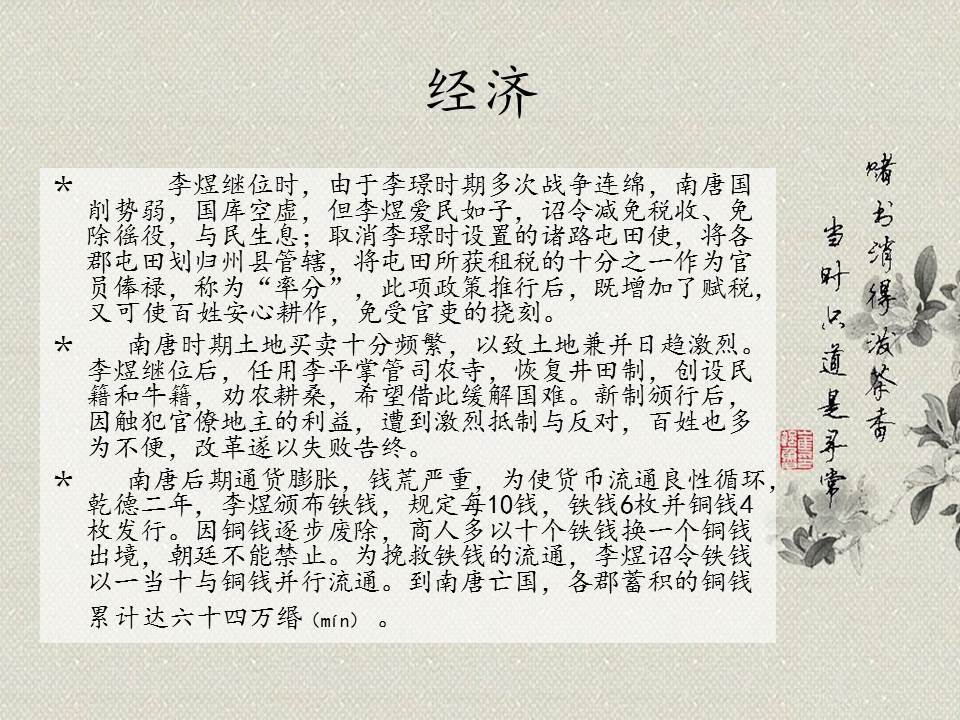 经济
* 李煜继位时，由于李璟时期多次战争连绵，南唐国
削势弱，国库空虚，但李煜爱民如子，诏令减免税收、免
除徭役，与民生息；取消李璟时设置的诸路屯田使，将各
郡屯田划归州县管辖，将屯田所获租税的十分之一作为官
员俸禄，称为“率分”，此项政策推行后，既增加了赋税，
又可使百姓安心耕作，免受官吏的挠刻。
* 南唐时期土地买卖十分频繁，以致土地兼并日趋激烈。
李煜继位后，任用李平掌管司农寺，恢复井田制，创设民
籍和牛籍，劝农耕桑，希望借此缓解国难。新制颁行后，
因触犯官僚地主的利益，遭到激烈抵制与反对，百姓也多
为不便，改革遂以失败告终。
* 南唐后期通货膨胀，钱荒严重，为使货币流通良性循环，
乾德二年，李煜颁布铁钱，规定每10钱，铁钱6枚并铜钱4
枚发行。因铜钱逐步废除，商人多以十个铁钱换一个铜钱
出境，朝廷不能禁止。为挽救铁钱的流通，李煜诏令铁钱
以一当十与铜钱并行流通。到南唐亡国，各郡蓄积的铜钱
累计达六十四万缗（mín）。
赌书消得泼茶香
当时只道是寻常